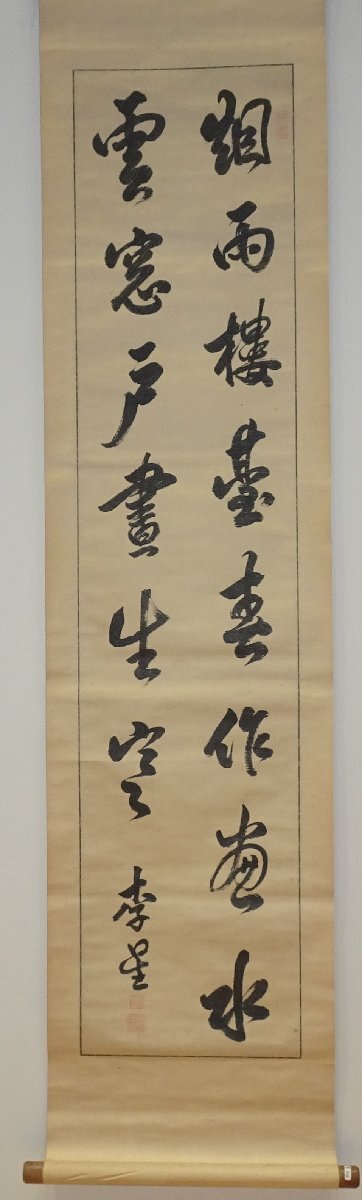 烟雨樓臺春作畫水
雲窓戶晝生寒 李星